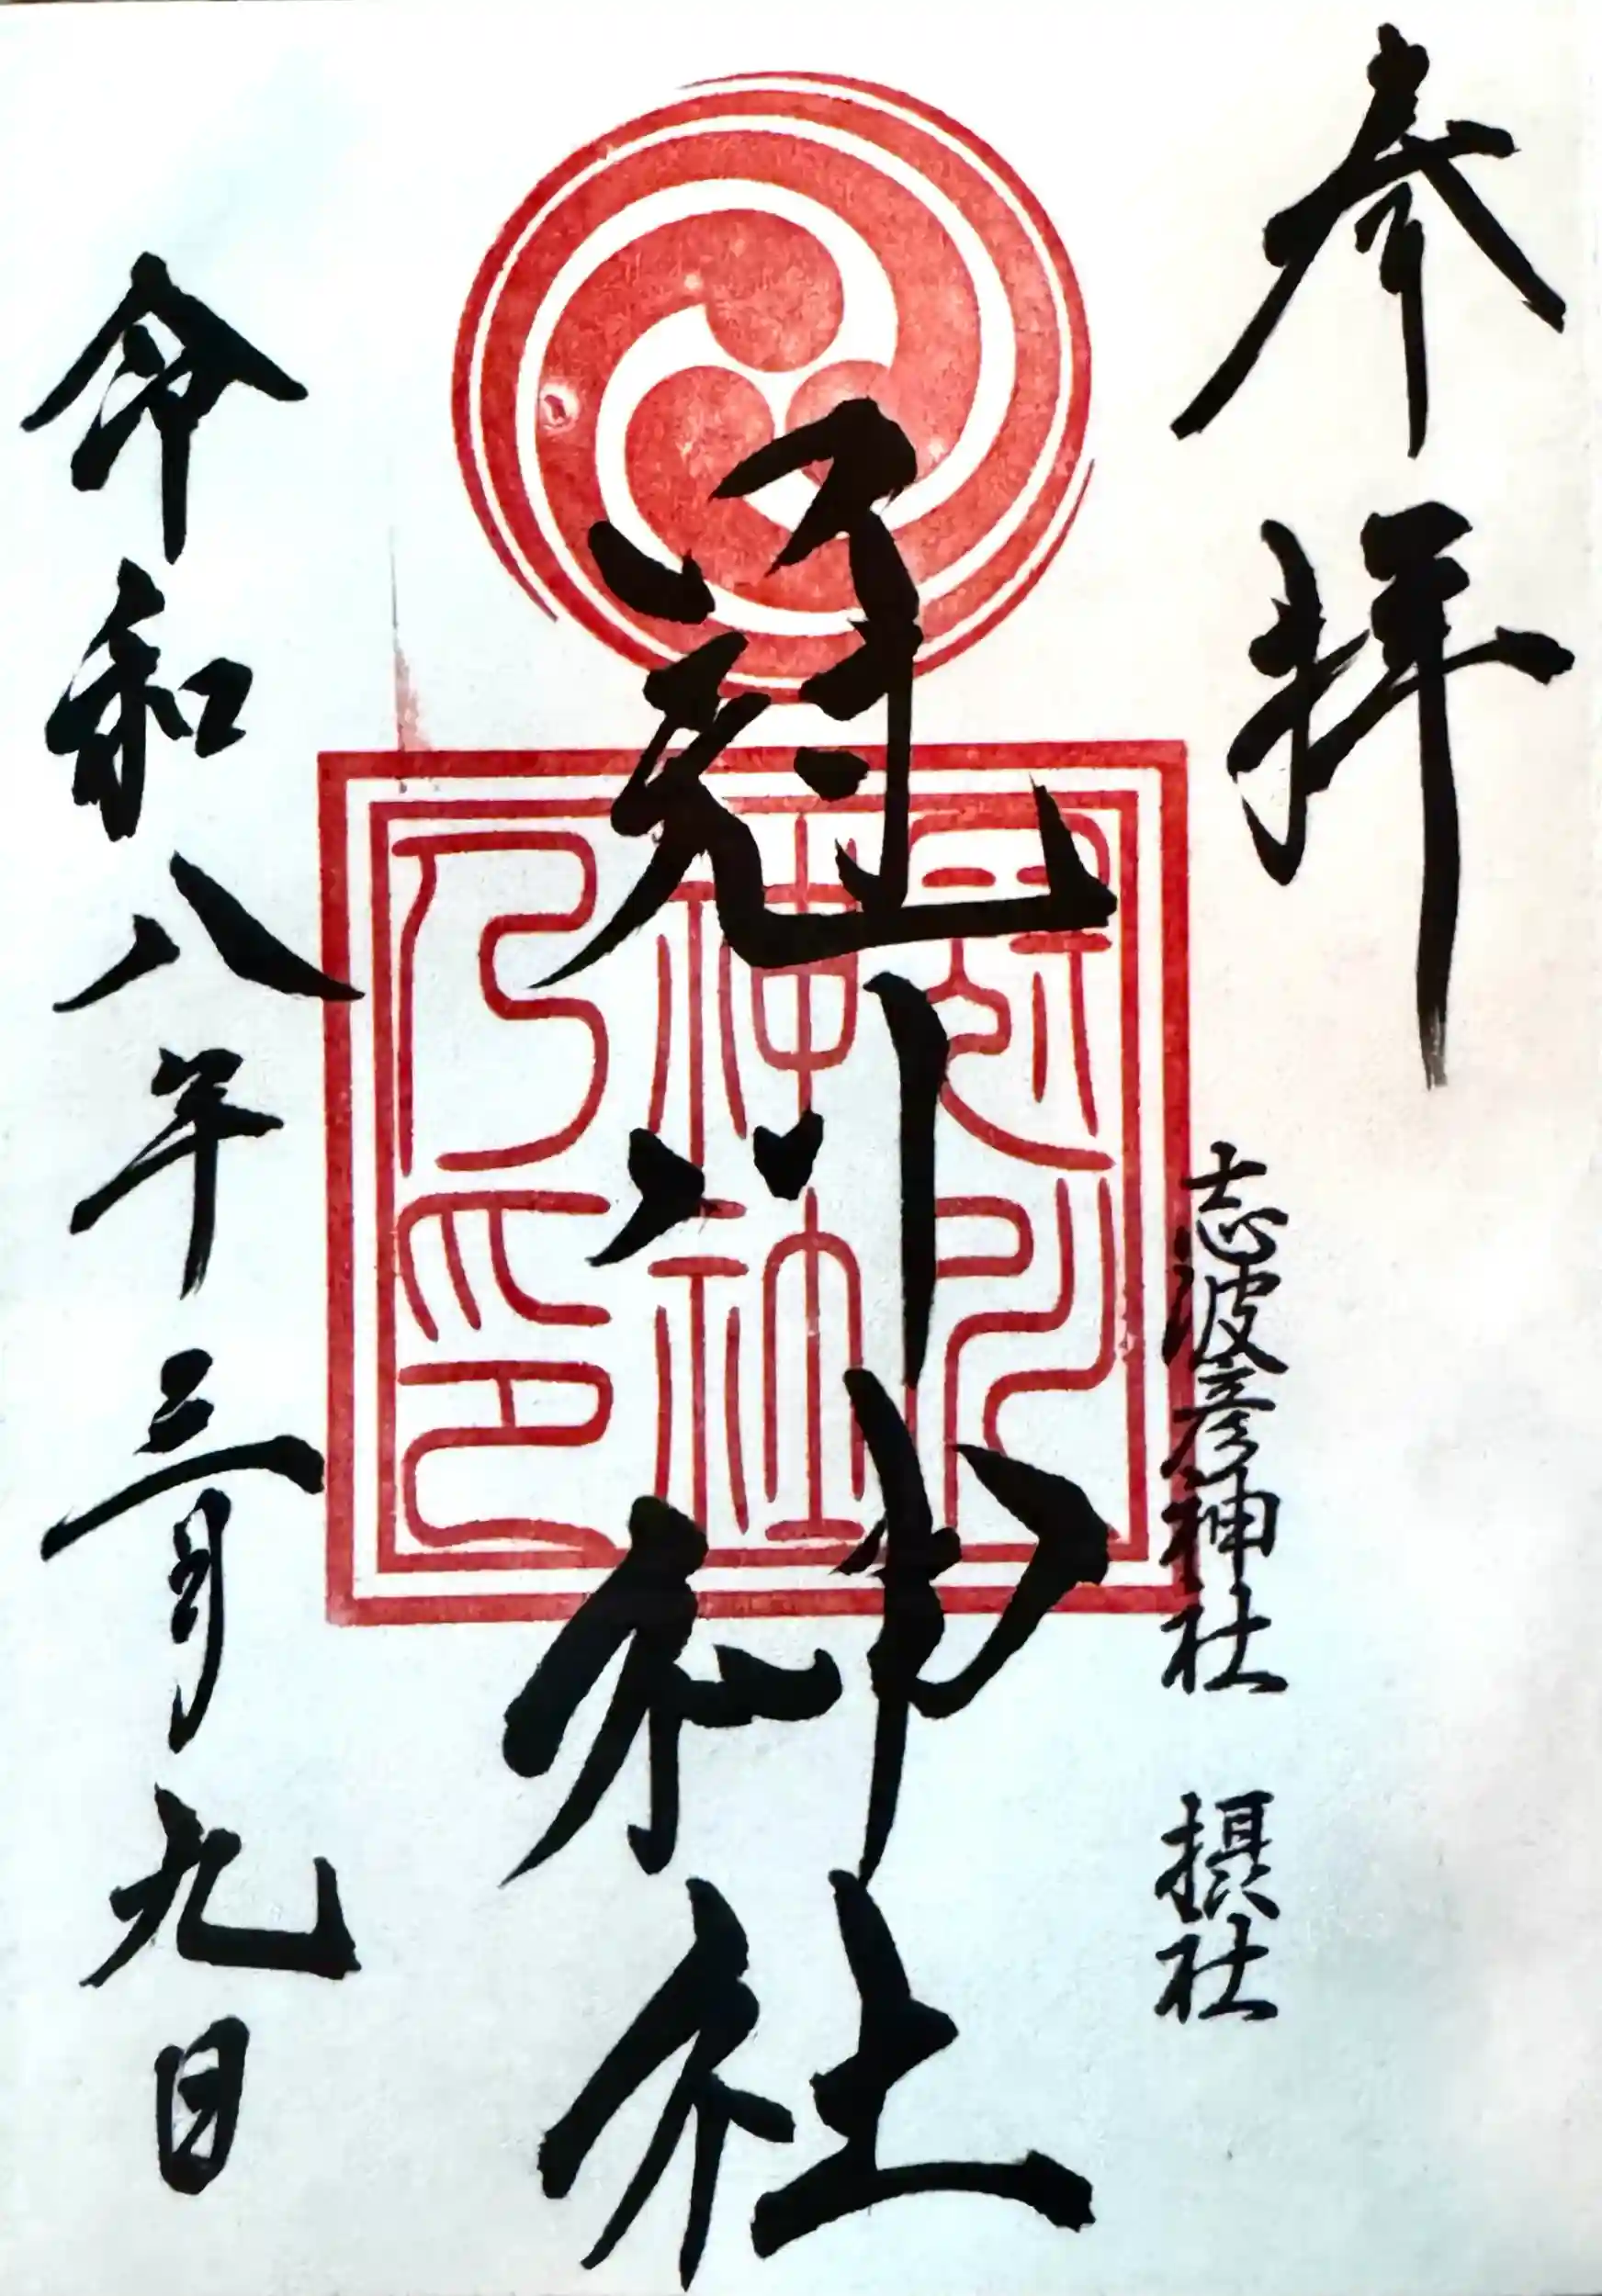 参拝
志波彦神社 摂社
冠川神社
冠川
神社
乃印
令和八年三月九日